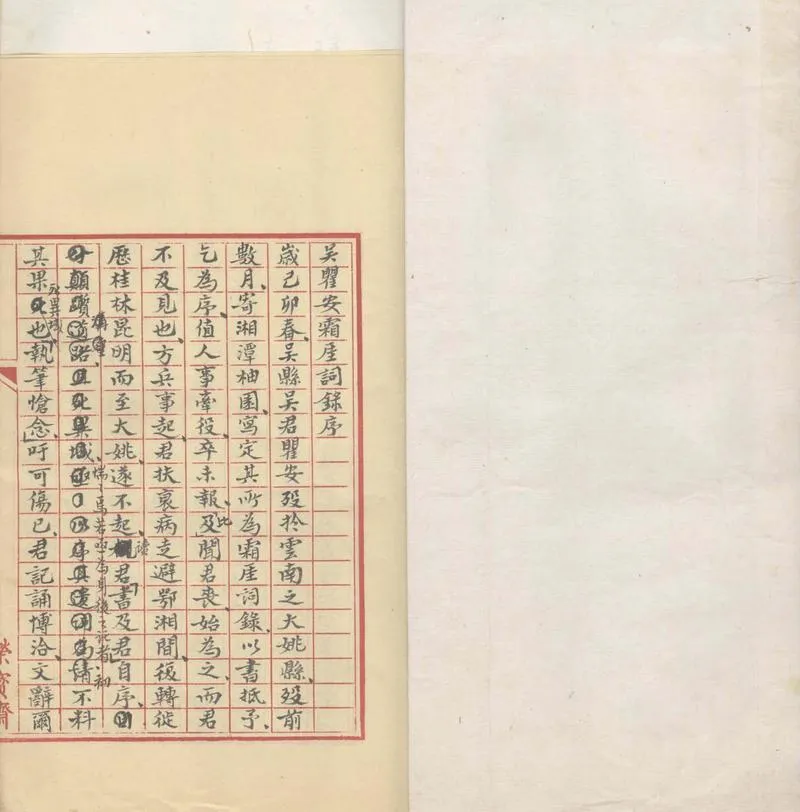 吳瞿安霜厓詞錄序
歲己卯春、吳縣吳君瞿安歿於雲南之大姚縣、歿前
數月、寄湘潭柚園、寫定其所為霜厓詞錄、以書抵予、
乞為序、值人事牽役、卒未報、及聞君喪、始為之、而君
比
不及見也、方兵事起、君扶衰病走避鄂湘間、復轉徙
歷桂林昆明而至大姚、遂不起、君書及君自序、
讀
惴惴焉若亟為身後之託者、初
顛躓道路且死異域序其遺詞為情不料
其果死也執筆愴念、吁可傷已、君記誦博洽、文辭爾
異域
榮寶齋